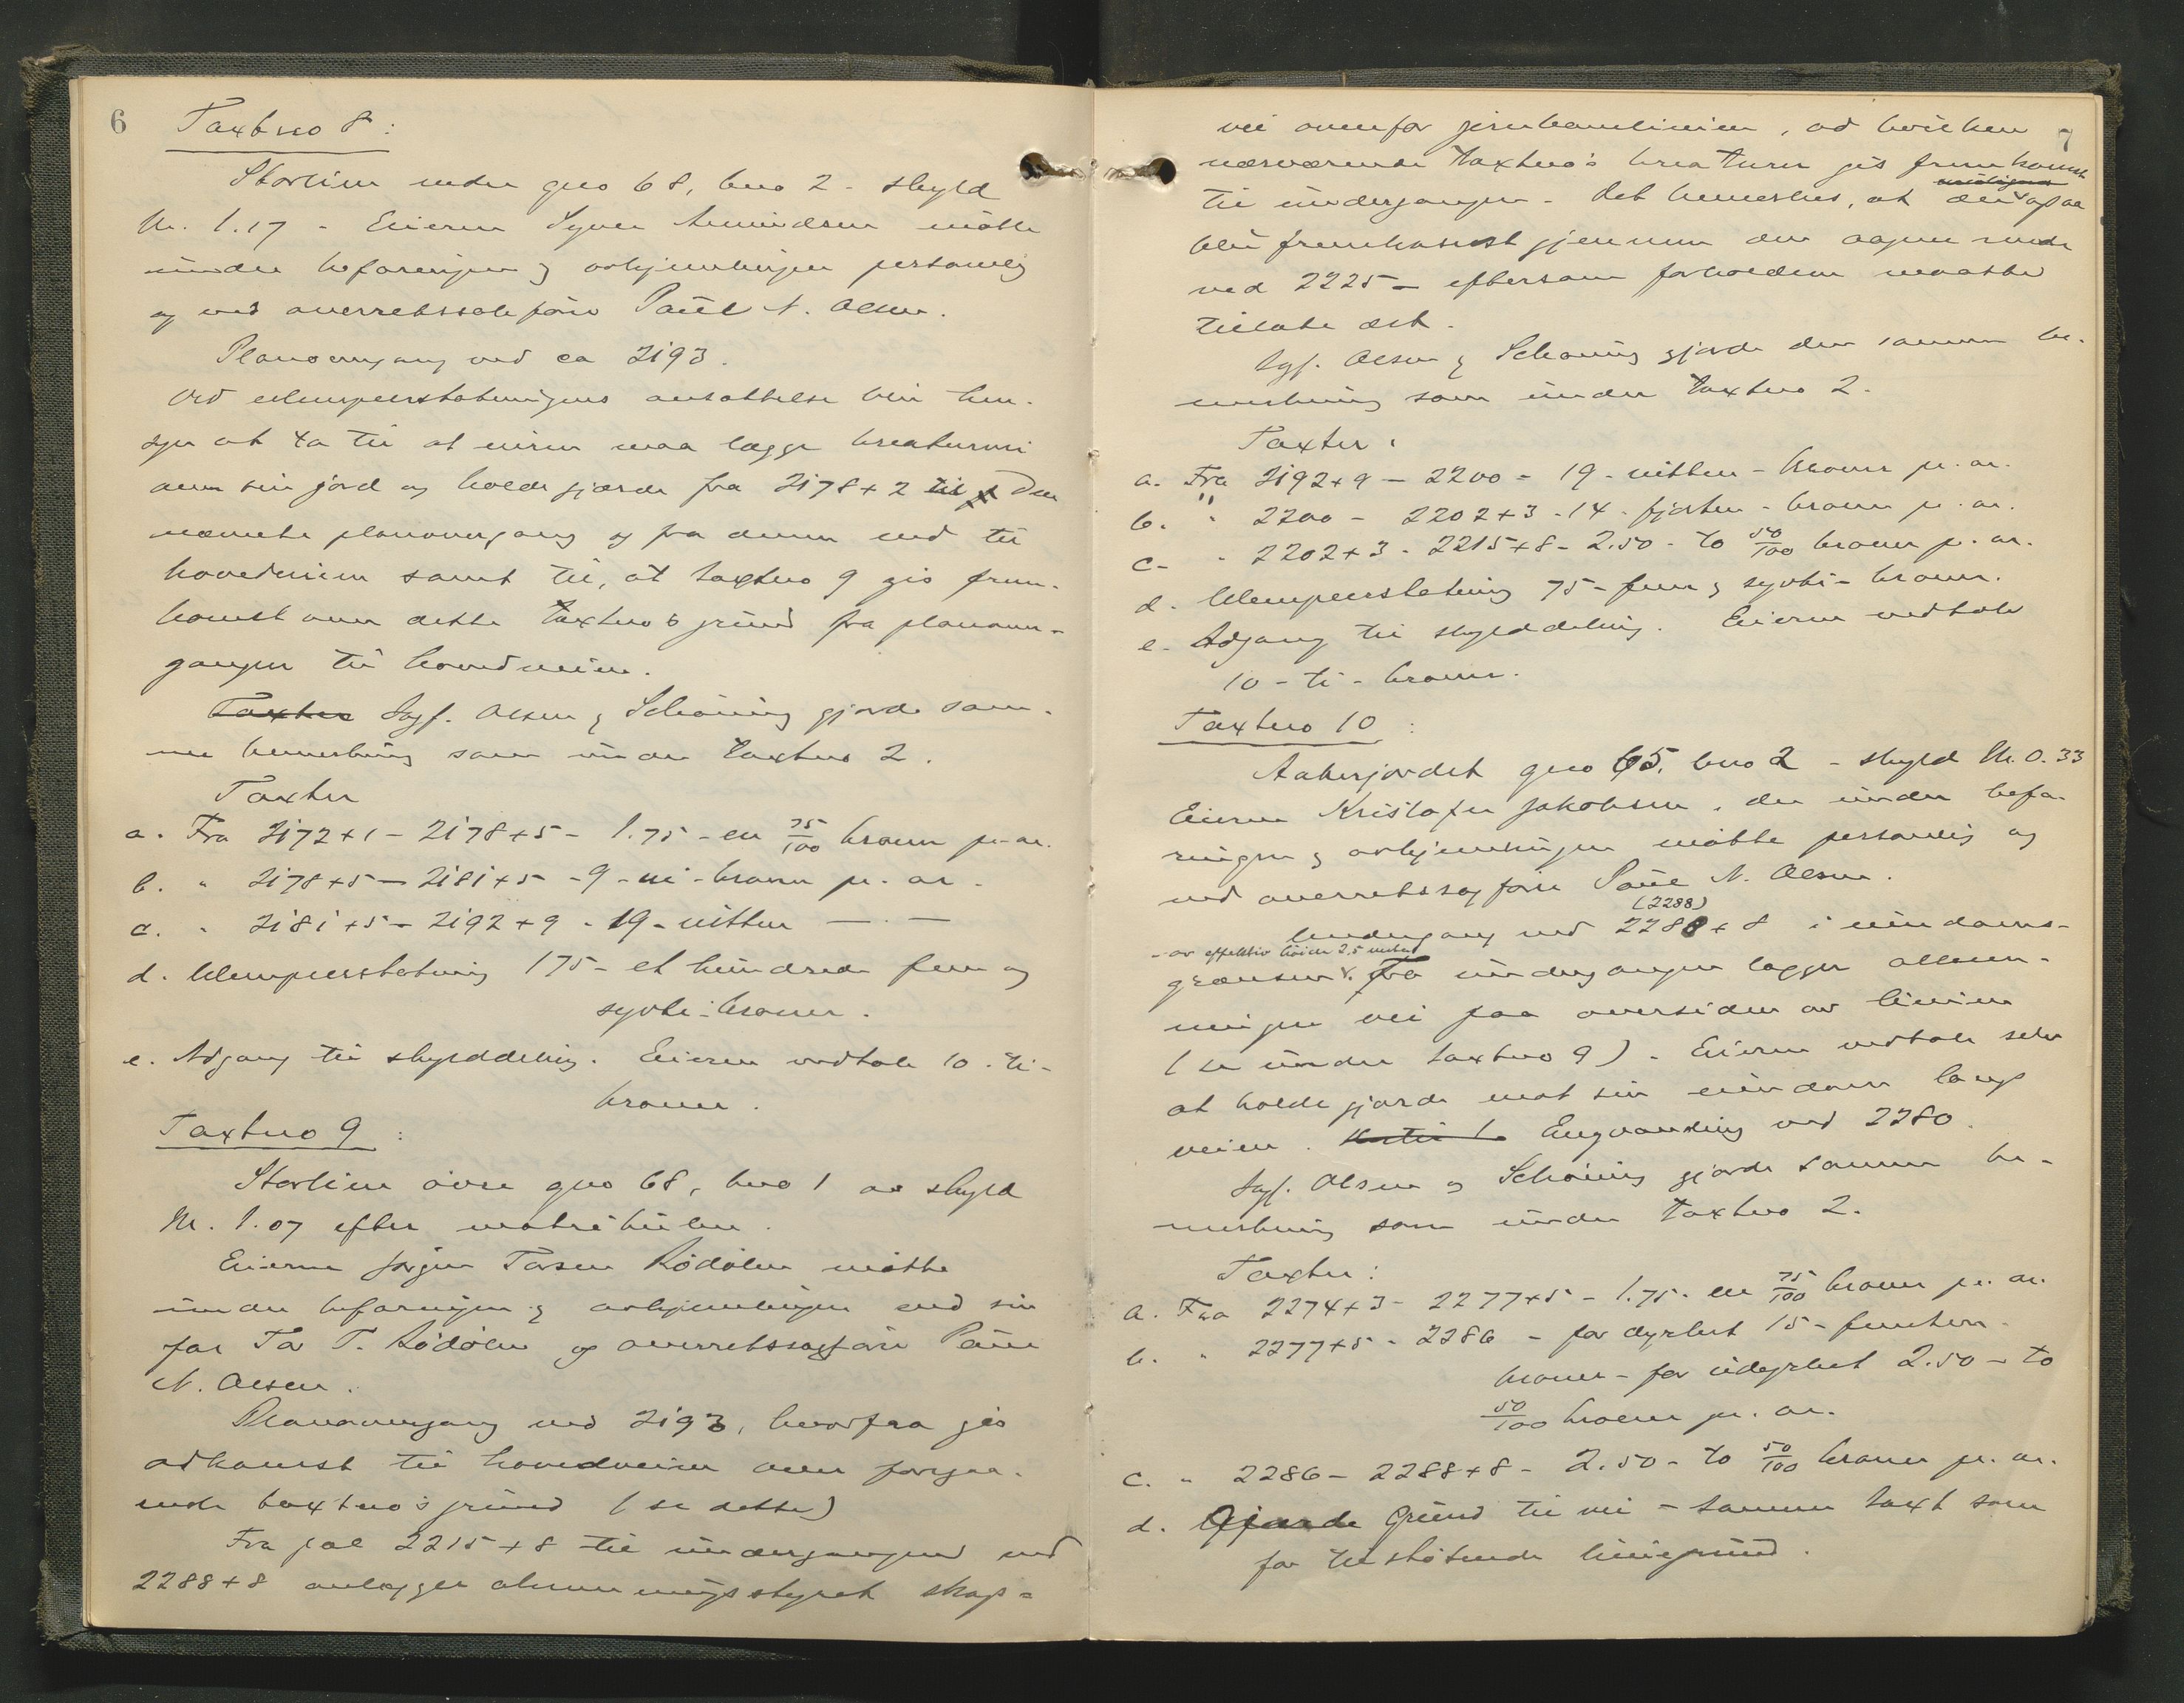 6
Taxtno 8:
Storlien under gno 68, bno 2 - skyld
M. 1.17 - Eieren Syver Amundsen møtte
under befaringen og avhjemlingen personlig
og ved overretssakfører Paul N. Olsen.
Planovergang ved ca 2193.
Ved ulempeerstatningens ansættelse blir hen-
syn at ta til at eieren maa lægge kreaturvei
over sin jord og holde gjærde fra 2178+2 til den
nævnte planovergang og fra denne ned til
hovedveien samt til, at taxtno 9 gis frem-
komst over dette taxtno's grund fra planover-
gangen til hovedveien.
Taxter Sagf. Olsen & Schøning gjorde sam-
me bemerkning som under taxtno 2.
Taxter
a. Fra 2172+1 - 2178+5 - 1.75 - en 75/100 kroner pr. ar.
b. " 2178+5 - 2181+5 - 9 - ni - kroner pr. ar.
c. " 2181+5 - 2192+9 - 19 - nitten — " —
d. Ulempeerstatning 175 - et hundrede fem og
sytti - kroner.
e. Adgang til skylddeling. Eieren vedtok 10 - ti -
kroner.
Taxtno 9:
Storlien øvre gno 68, bno 1 av skyld
M. 1.07 efter matrikulen.
Eieren Jørgen Torsen Rødølen møtte
under befaringen & avhjemlingen ved sin
far Tor T. Rødølen og overretssagfører Paul
N. Olsen.
Planovergang ved 2193, hvorfra gis
adkomst til hovedveien over foregaa-
ende taxtno's grund (se dette)
Fra pæl 2215+8 til undergangen ved
2288+8 anlægger almenningsstyret skogs-
7
vei ovenfor jernbanelinien, ad hvilken
nærværende taxtno's kreaturer gis fremkomst
til undergangen - Det bemerkes, at der ogsaa
blir fremkomst gjennem den aapne rende
ved 2225 - eftersom forholdene maatte
tillate det.
Sagf. Olsen & Schøning gjorde den samme be-
merkning som under taxtno 2.
Taxter:
a. Fra 2192+9 - 2200 - 19 - nitten - kroner pr. ar.
b. " 2200 - 2202+3 - 14 - fjorten - kroner pr. ar.
c. " 2202+3 - 2215+8 - 2.50 - to 50/100 kroner pr. ar.
d. Ulempeerstatning 75 - fem & sytti - kroner.
e. Adgang til skylddeling. Eieren vedtok
10 - ti - kroner.
Taxtno 10:
Aakerjordet gno 65, bno 2 - skyld M. 0.33
Eieren Kristofer Jakobsen, der under befa-
ringen & avhjemlingen møtte personlig og
ved overretssagfører Paul N. Olsen.
(2288)
Undergang ved 2288+8 i eiendoms-
- av effektiv høide 2,5 meter
grænsen. Fra undergangen lægger almen-
ningen vei paa oversiden av linien
(se under taxtno 9). Eieren vedtok selv
at holde gjærde mot sin eiendom langs
veien. Engvanding ved 2280.
Sagf. Olsen og Schøning gjorde samme be-
merkning som under taxtno 2.
Taxter:
a. Fra 2274+3 - 2277+5 - 1.75 - en 75/100 kroner pr. ar.
b. " 2277+5 - 2286 - for dyrket 15 - femten -
kroner - for udyrket 2.50 - to
50/100 kroner pr. ar.
c. " 2286 - 2288+8 - 2.50 - to 50/100 kroner pr. ar.
d. Gjærde Grund til vei - samme taxt som
for tilstøtende liniegrund.